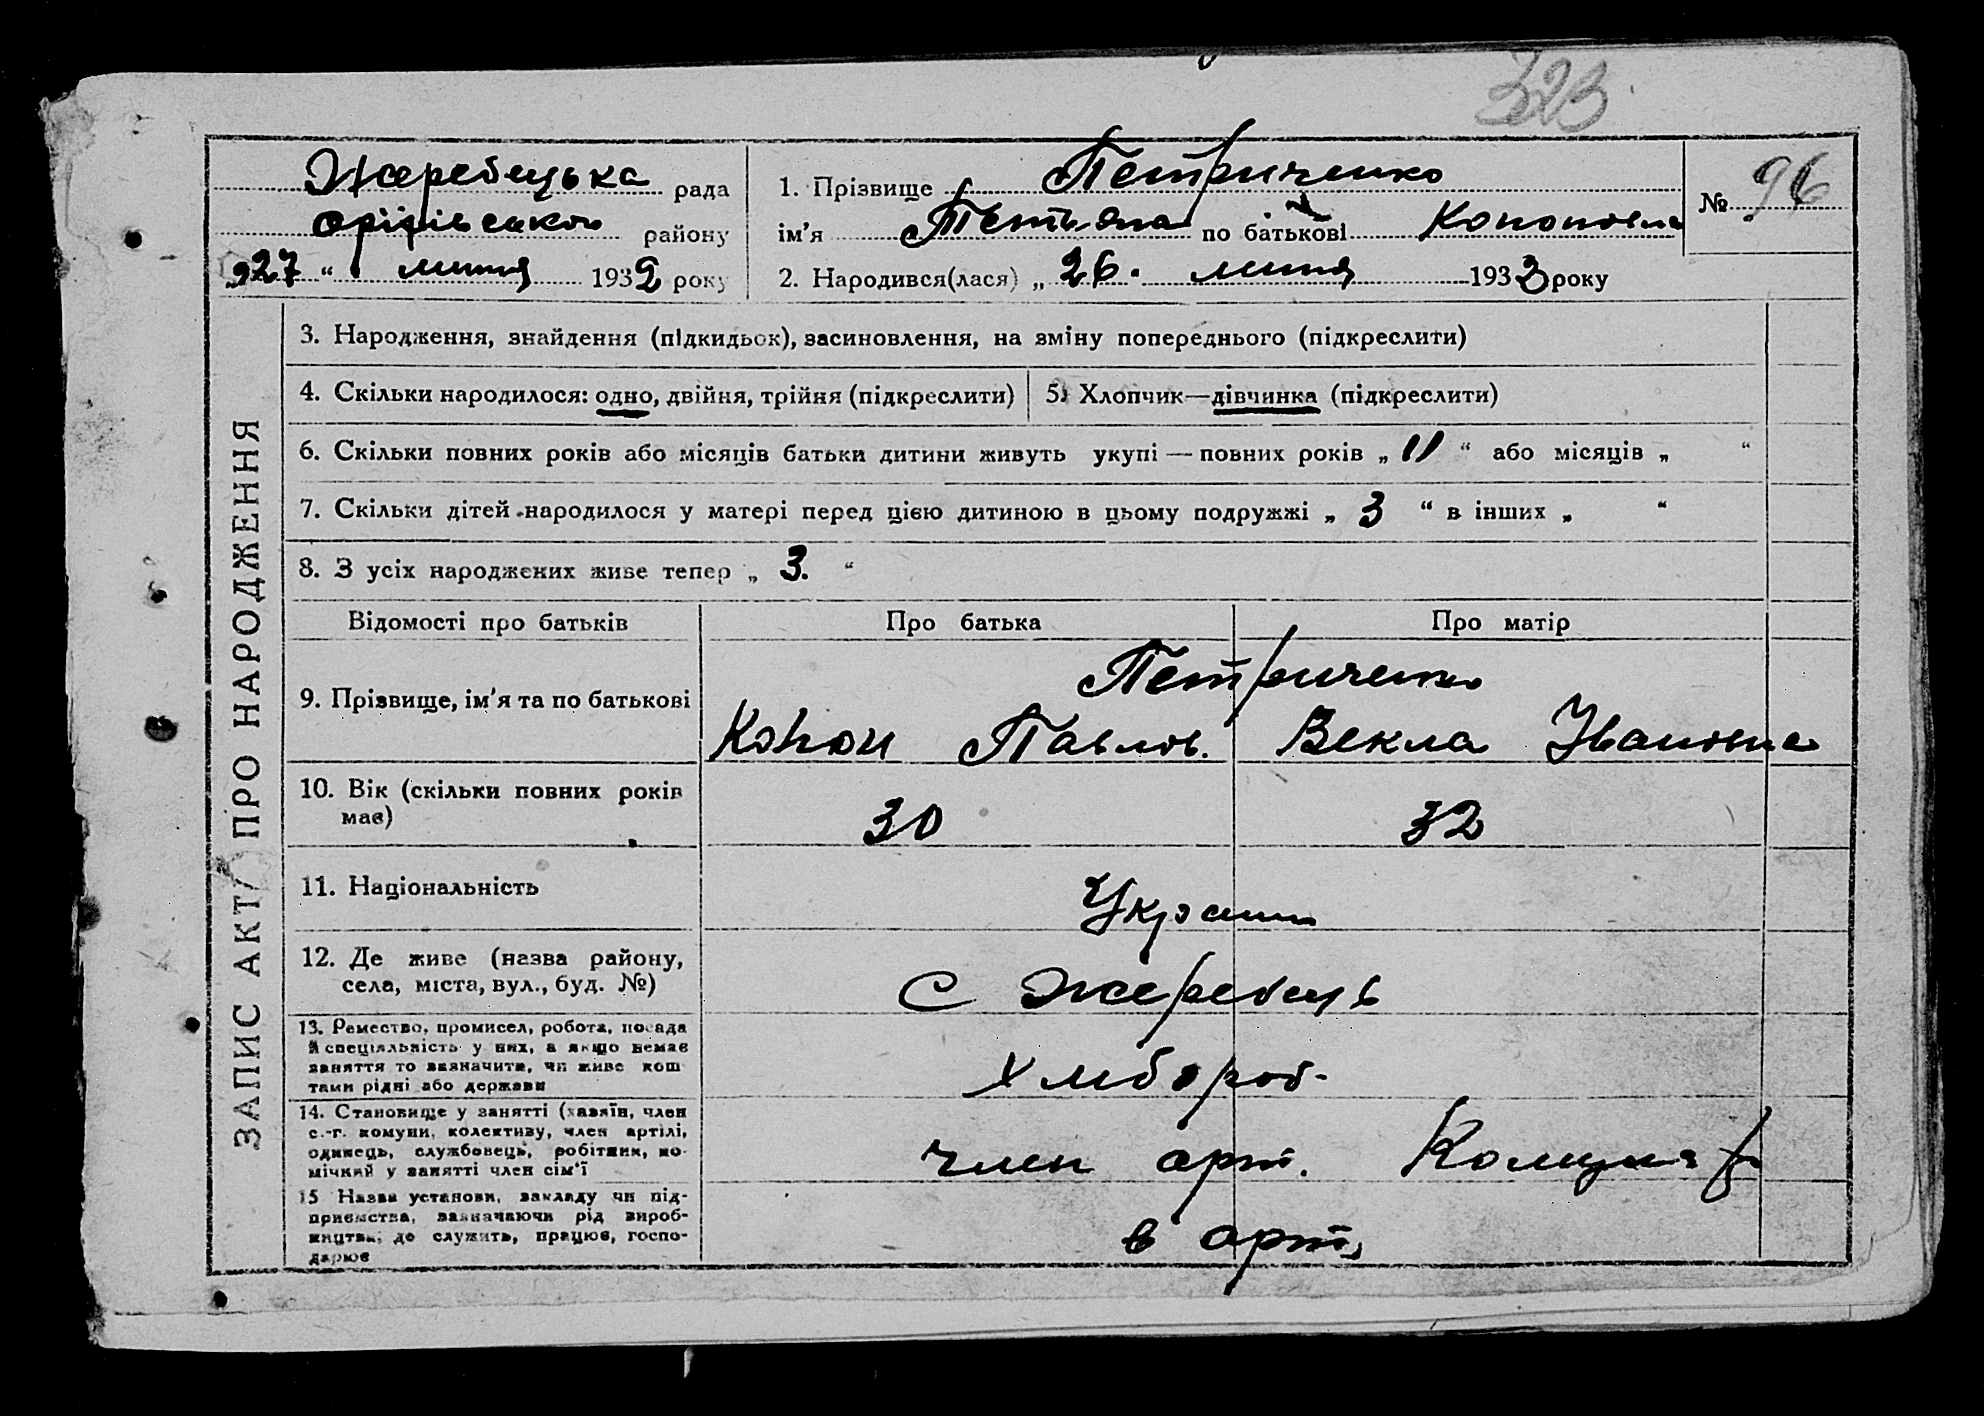 323
Жеребецька рада
Оріхівського району
„27“ липня 1932 року
1. Прізвище Петриченко
ім'я Тетьяна по батькові Кононовна
№ 96
2. Народився(лася) „26. липня 1933 року
ЗАПИС АКТУ ПРО НАРОДЖЕННЯ
3. Народження, знайдення (підкидьок), засиновлення, на зміну попереднього (підкреслити)
4. Скільки народилося: одно, двійня, трійня (підкреслити)
5. Хлопчик—дівчинка (підкреслити)
6. Скільки повних років або місяців батьки дитини живуть укупі — повних років „ 11 “ або місяців „ “
7. Скільки дітей народилося у матері перед цією дитиною в цьому подружжі „ 3 “ в інших „ “
8. З усіх народжених живе тепер „ 3. “
Відомості про батьків Про батька Про матір
9. Прізвище, ім'я та по батькові
Петриченко
Конон Павлов. Векла Ивановна
10. Вік (скільки повних років має)
30 32
11. Національність
Україн
12. Де живе (назва району,
села, міста, вул., буд. №)
с Жеребець
13. Ремество, промисел, робота, посада
й спеціяльність у них, а якщо немає
заняття то зазначити, чи живе кош
тами рідні або держави
Хлибороб.
14. Становище у занятті (хазяїн, член
с.-г. комуни, колективу, член артілі,
одинець, службовець, робітник, по-
мічний у занятті член сім'ї
член арт. Комуняр
15 Назва установи, закладу чи під-
приємства, зазначаючи рід вироб-
ництва, де служить, працює, госпо-
дарює
в арт.